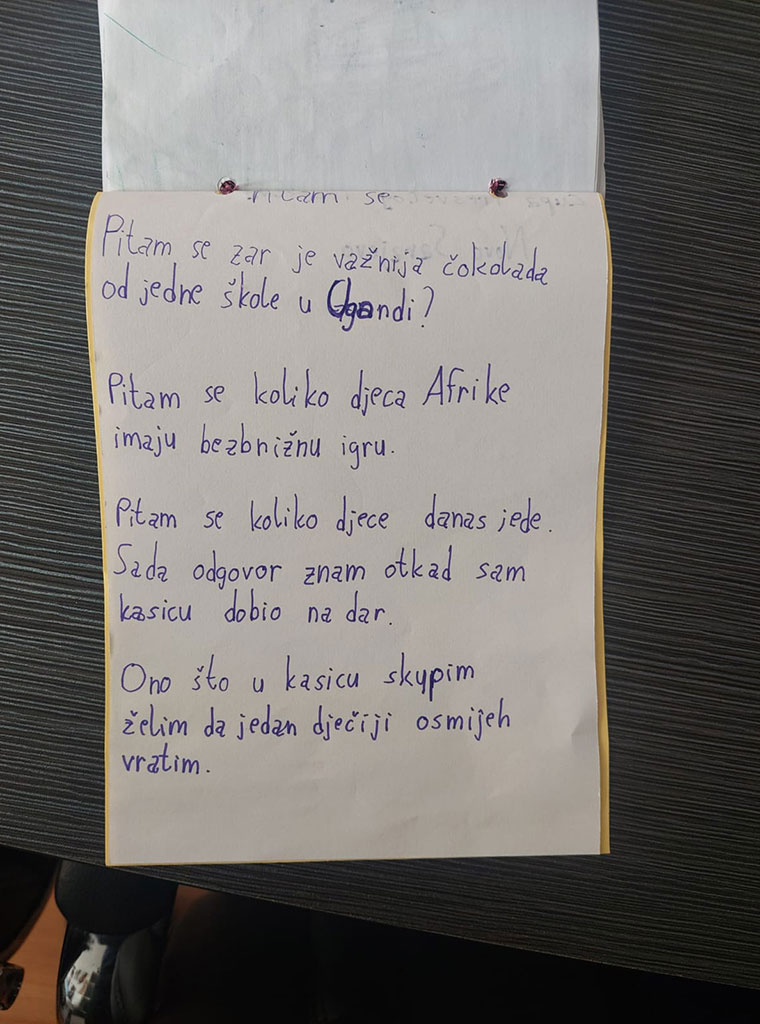 Pitam se
Pitam se zar je važnija čokolada
od jedne škole u Ugandi?
Pitam se koliko djeca Afrike
imaju bezbnižnu igru.
Pitam se koliko djece danas jede.
Sada odgovor znam otkad sam
kasicu dobio na dar.
Ono što u kasicu skupim
želim da jedan dječiji osmijeh
vratim.